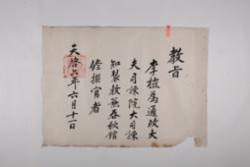 教旨
李植為通政大
夫司諫院大司諫
知製教兼春秋館
修撰官者
天啓六年六月十一日